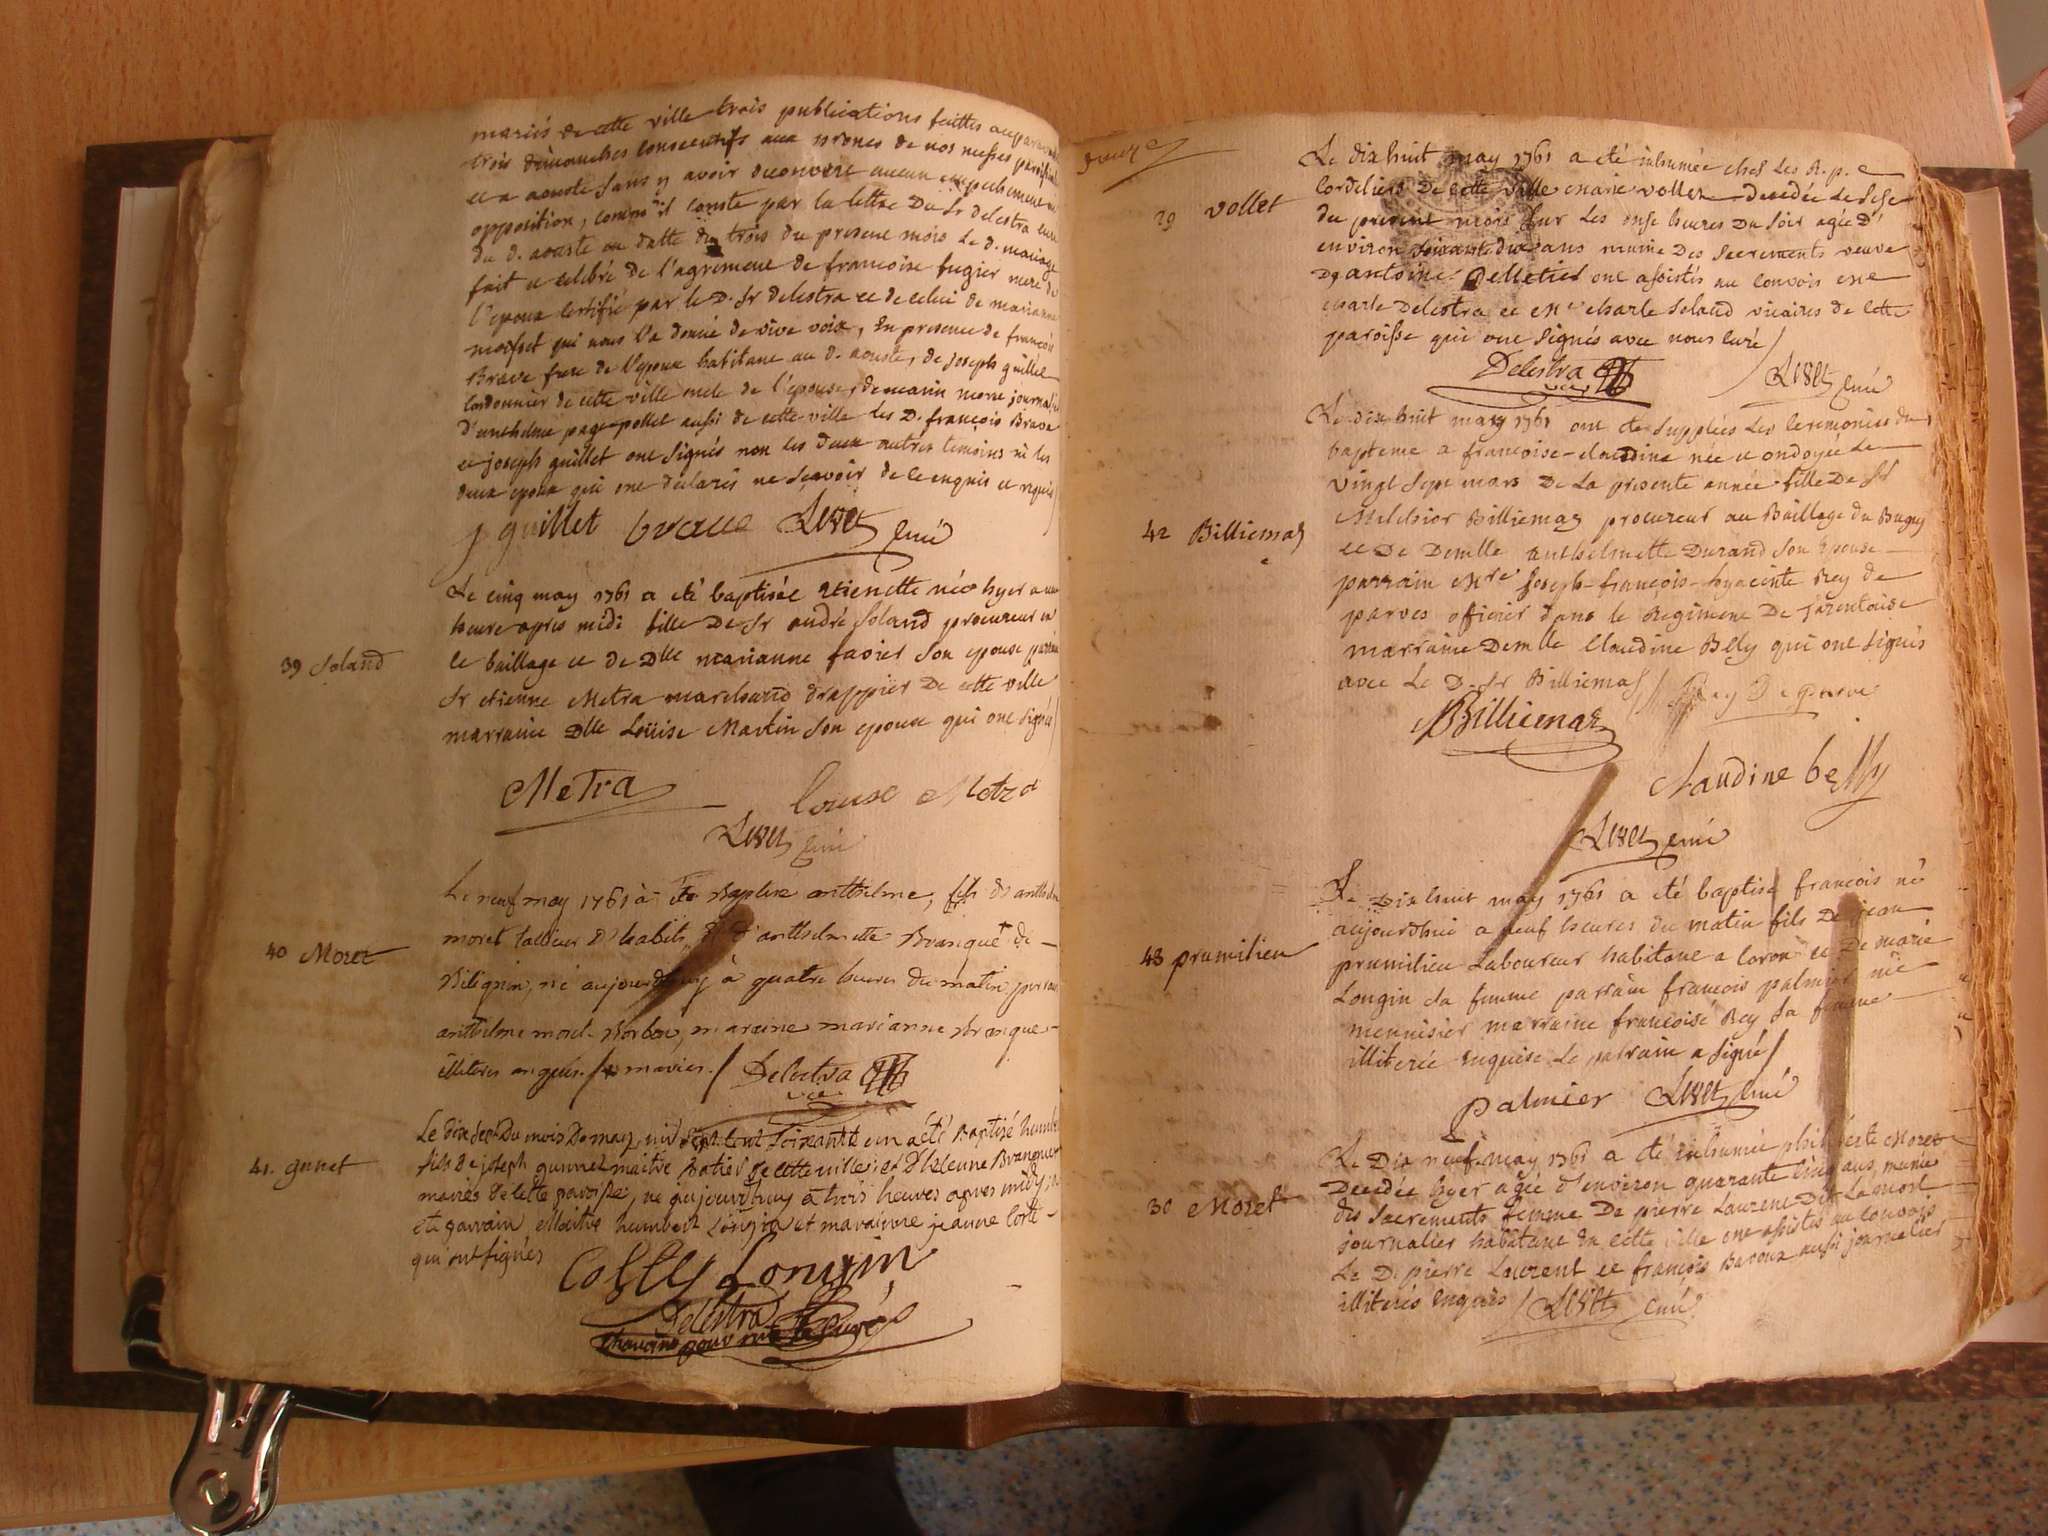 mariés de cette ville trois publications faittes auparavant
trois dimanches consecutifs aux prones de nos messes paroissiales
et a aouste sans y avoir decouvert aucun empechement ni
opposition, comm'il conste par la lettre Du Sr delestra curé
du d. aouste en datte du trois du present mois le d. mariage
fait et celebré de l'agrement de francoise fugier mere de
l'epoux certifié par le D. Sr delestra et de celui de marianne
qui nous l'a donné de vive voix, En presence de francois
Brave frere de l'epoux habitant au d. aouste, de Joseph guillet
Cordonnier de cette ville oncle de l'epouse, de marin journalier
d'anthelme page pollet aussi de cette ville les D. françois Brave
et joseph guillet ont signés non les deux autres temoins ni les
deux epoux qui ont declarés ne scavoir de ce enquis et requis
j guillet brave Livet curé
39 Soland
Le cinq may 1761 a été baptisée Etienette née hyer a une
heure apres midi fille De Sr andré Soland procureur en
le baillage et de Dlle marianne favier Son epouse parrain
Sr etienne Metra marchand drappier De cette ville
marraine Dlle Loüise Martin Son epouse qui ont signés
Metra louise Metra
Livet curé
40 Moret
Le neuf may 1761 a été Baptisé anthelme, fils de anthelme
moret tailleur D'habits & d'anthelmette Branque de
Bilignin, né aujourdhuy à quatre heures du matin parrain
anthelme moret Borbon, maraine marianne Branque
illiteres enquis. / mariés. / Delestra vic
41. gunet
Le dix sept Du mois De may mil Sept cent Soixante un a été Baptisé humbert
fils De joseph gunnet maitre de cette ville, et D'helenne Branquet
mariés de cette paroisse, né aujourdhuy à trois heures apres midy
été parrain Maitre humbert Longin et marainne jeanne
qui ont signés
Colly Longin
Delestra
chanoine pour mr le Curé
29 vollet
Le dix huit may 1761 a été inhumée ches les R. p.
Cordeliers De cette ville marie vollet decedée le sese
du present mois sur les onse heures Du soir agée D'
environ soixante dix ans munie Des Sacrements veuve
D'antoine Pelletier ont assistés au convois Mre
charle Delestra et Mre charle Soland vicaires de cette
paroisse qui ont signés avec nous curé /
Delestra vic Livet curé
42 Billiemas
Le dix huit may 1761 ont été supplées Les ceremonies du
bapteme a francoise-claudine née et ondoyée le
vingt sept mars De La presente année fille De Sr
Melchior Billiemaz procureur au Baillage du Bugey
et De Demlle anthelmette Durand Son Epouse
parrain Mre Joseph-françois-hyacinte Rey de
parves officier dans le Regiment De Tarentaise
marraine Demlle Claudine Belly qui ont signés
avec Le D. Sr Billiemas / Rey De parve
Billiemaz
Claudine belly
Livet curé
43 prumilieu
Le Dix huit may 1761 a été baptisé francois né
aujourdhui a neuf heures du matin fils De jean
prumilieu Laboureur habitant a Coron et De marie
Longin sa femme parrain francois palmier mtre
mennisier marraine françoise Rey sa femme
illiterée enquise Le parrain a signé /
palmier Livet curé
30 Moret
Le Dix neuf may 1761 a été inhumée Moret
Decedée hyer agée d'environ quarante cinq ans munie
des Sacrements femme De pierre Laurent Dit La mort
journalier habitant en cette ville ont assistés au convois
Le D. pierre Laurent et françois Bavoux aussi journalier
illiterés enquis / Livet curé